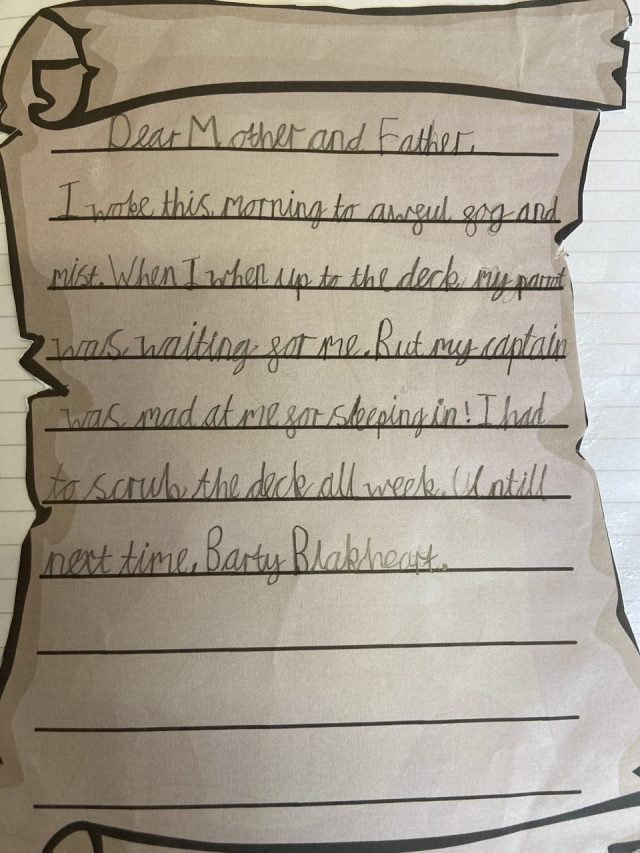 Dear Mother and Father,
I woke this morning to awful fog and
mist. When I when up to the deck my parrot
was waiting for me. But my captain
was mad at me for sleeping in! I had
to scrub the deck all week. Untill
next time, Barty Blakheart.